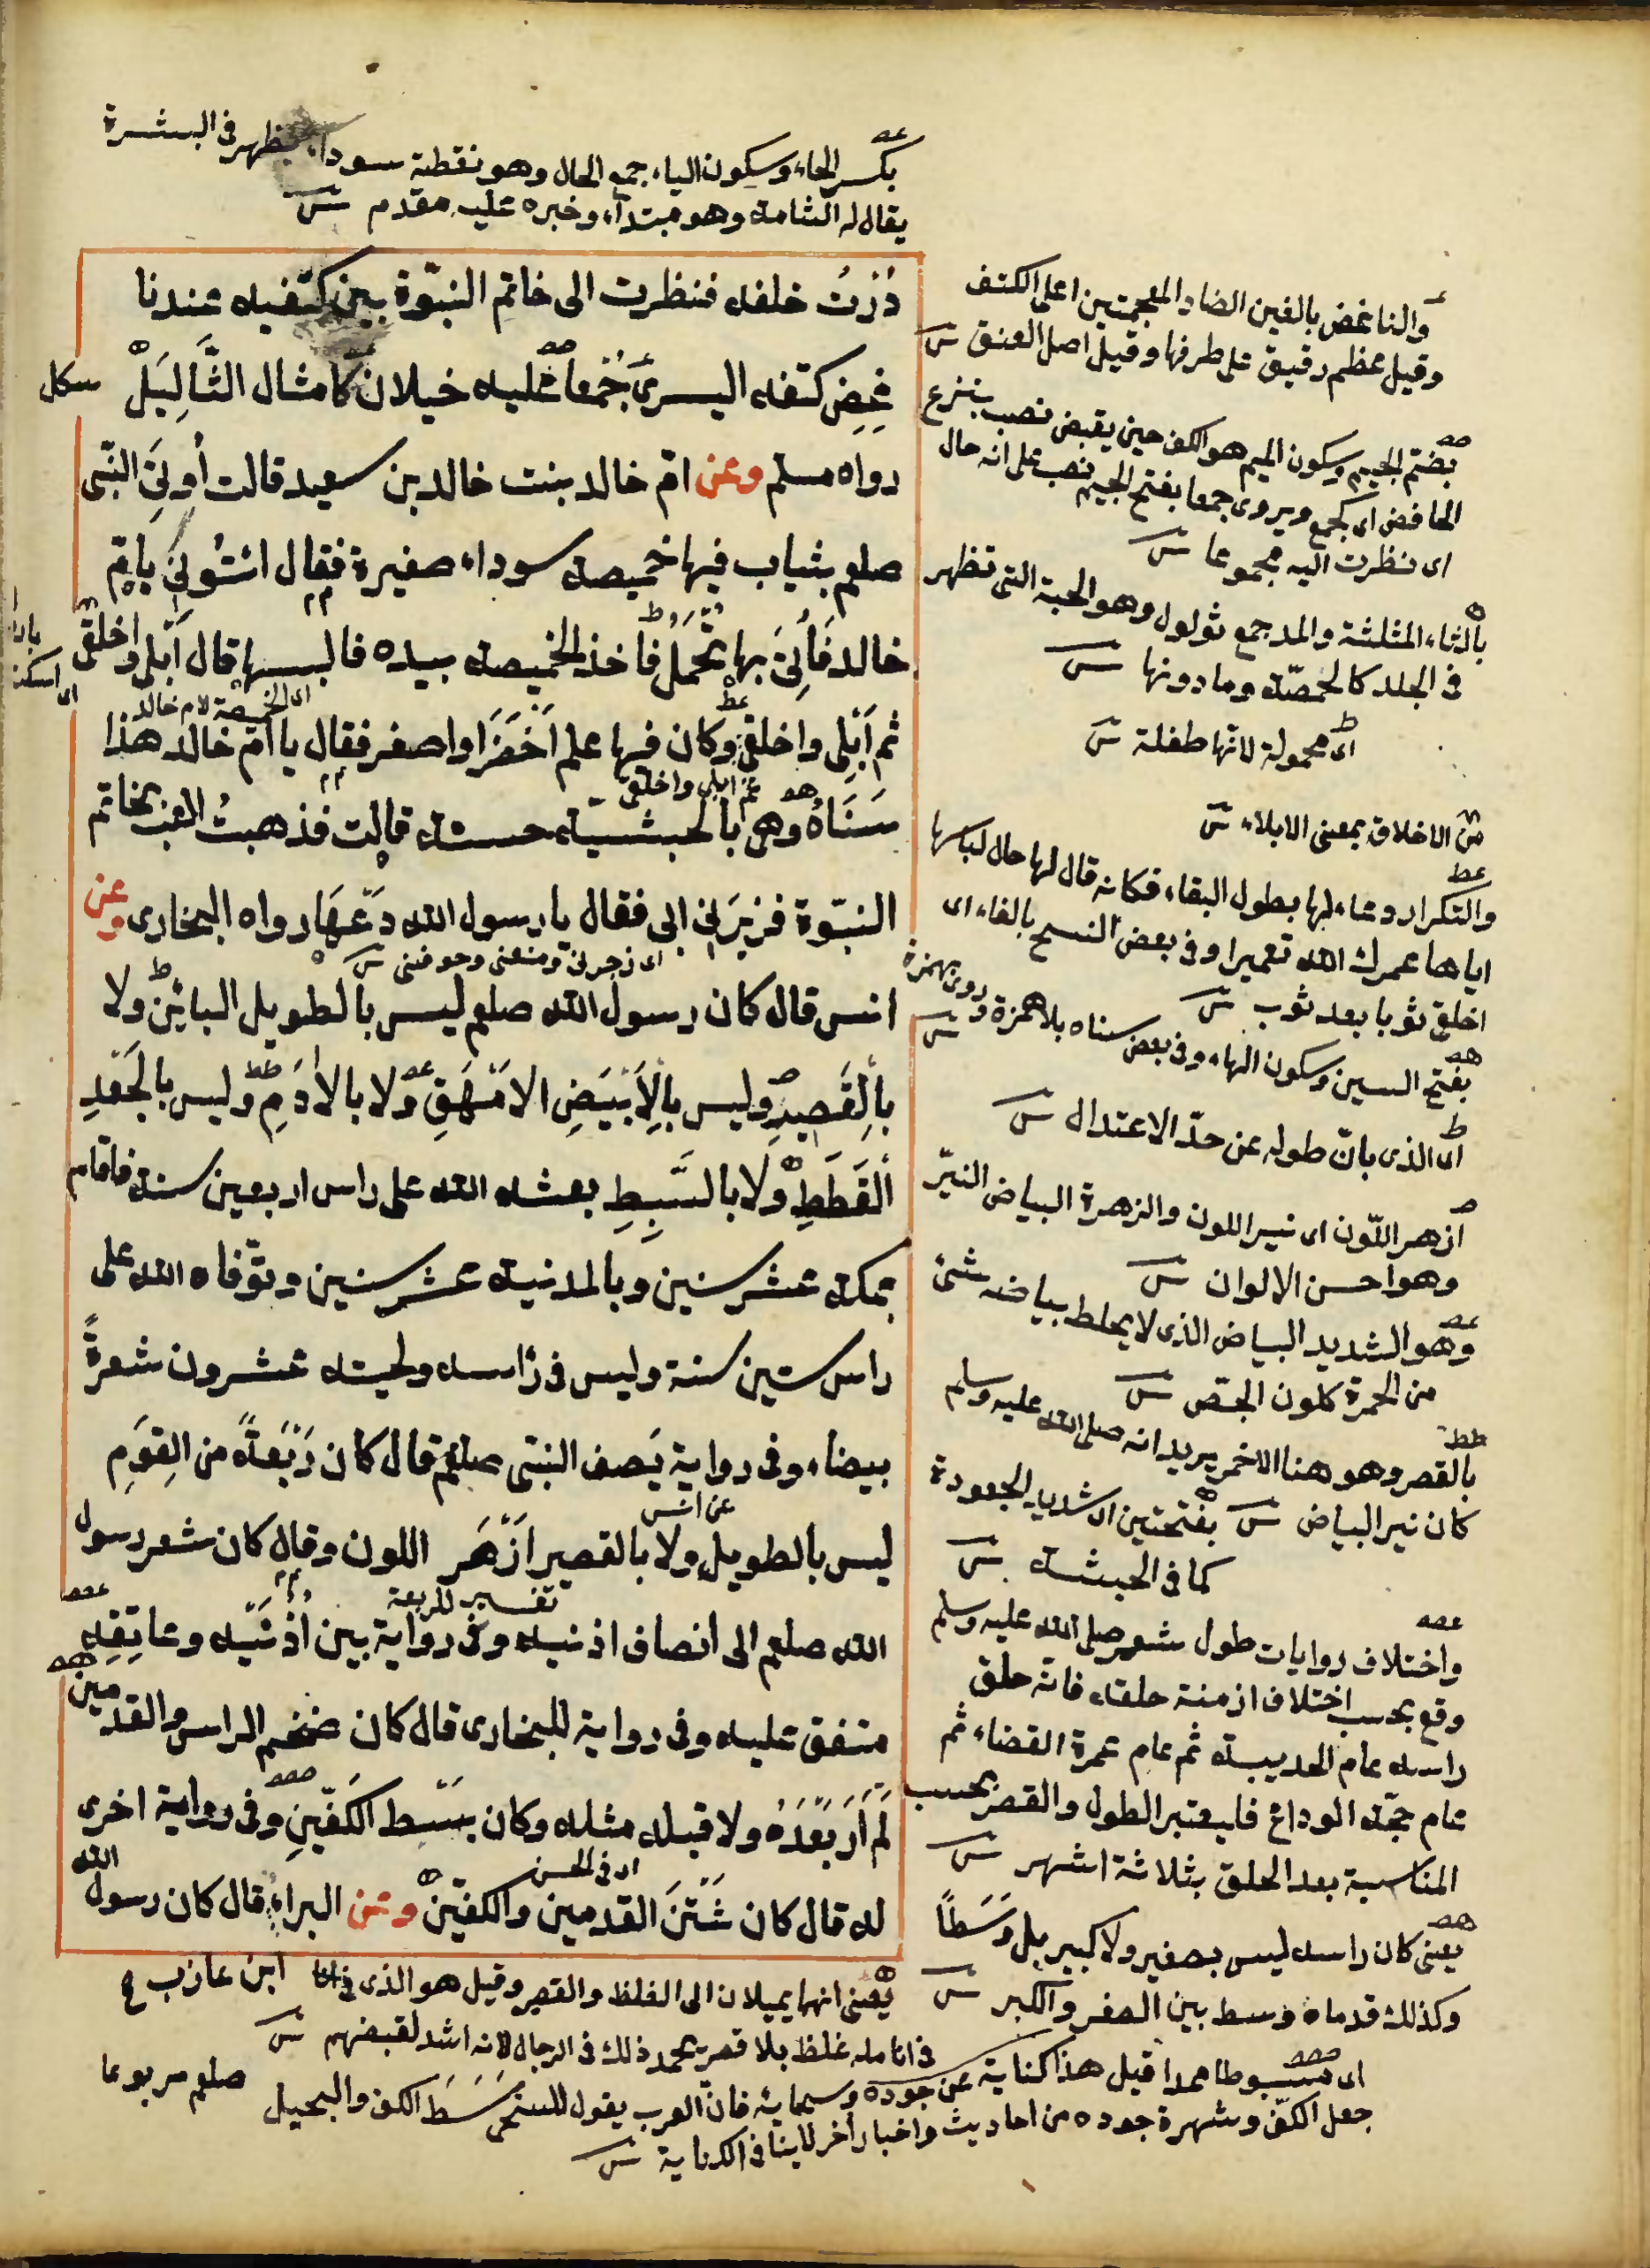 بكسر الخاء وسكون الياء جمع الخال وهو نقطة سوداء يظهر فى البشرة
يقال له الشامة وهو مبتداء وخبره عليه مقدم ش
دُرتُ خلفه فنظرت الى خاتم النبّوة بين كتفيه عندنا
غِضِ كتفه اليسرىَ جُمْعاً عليه خيلان كامثال الثَّالِيَلْ
رواه مسلم وعن امّ خالد بنت خالد بن سعيد قالت أُوتِىَ النّبى
صلعم بثياب فيها خميصة سوداء صغيرة فقال ائتُونى بامّ
خالد فَأُتِىَ بها تُحْمَلُ فاخذ الخميصة بيده فالبسها قال اَبْلى واخلقى
اى الخميصة لام خالد
ثم اَبْلِى واخلقى وكان فيها علم اَخْضَرَ او اصفر فقال يا امّ خالد هذا
ثم ابلى واخلقى
سَنَاهُ وهى بالحبشيّة حسنة قالت فذهبتُ العب بخاتم
النبّوة فزبرَنِى ابى فقال يا رسول الله دَعْهَا رواه البخارى وعن
اى زجرنى ومنعنى وخوفنى ش
انس قال كان رسول الله صلعم ليس بالطويل البائِن ولا
بالْقَصِيِر وليس بالْاَبْيَضِ الاَمْهَقِ ولا بالاٰدَمِ وليس بالجَعْدِ
اَلْقَطَطِ ولا بالسَّبِطِ بعثه الله على راس اربعين سنة فاقام
بمكة عشر سنين وبالمدنية عشر سنين وتوّفاه الله على
راس ستين سنة وليس فى رٔاسه ولحيته عشرون شعرةً
بيضاء وفى رواية يَصف النبّى صلعم قال كان رَبْعَةً من القِوَمِ
عن انس
ليس بالطويل ولا بالقصير اَزْهَر اللون وقال كان شعر رسول
تفسير للربعة
الله صلعم الى انصاف اذنيه وفى رواية بين اُذْنَيْه وعاتِقِه
متفق عليه وفى رواية للبخارى قال كان ضخم الراس والقدمين
لَمْ اَرَ بَعْدَهُ ولا قبله مثله وكان بَسْط الكَفّينِ وفى رواية اخرى
اى فى الحسن
له قال كان شَثْنَ القدمين والكفيّن وعن البراء قال كان رسول الله
ابن عازب
والناغض بالغين الضاد المعجمتين اعلى الكتف
وقيل عظم رقيق على طرفها وقيل اصل العنق ش
بضّم الجيم وسكون الميم هو الكف حين يقبض نصب بنزع
الخافض اى كجمع ويروى جمعا بفتح الجيم نصب على انه حال
اى نظرت اليه مجموعا ش
بالثاء المثلثة والمد جمع ثولول وهو الحبة التى تظهر
فى الجلد كالحمصّة وما دونها ش
اى محمولة لانّها طفلة ش
من الاخلاق بمعنى الابلاء ش
والتكرار دعاء لها بطول البقاء فكانه قال لها حال لباسها
اياها عمرك الله تعميرا وفى بعض النسخ بالفاء اى
اخلفى ثوبا بعد ثوب ش
بفتح السين وسكون الهاء وفى بعض سناه بلا همزة وروى بهمزة ش
اى الذى بانّ طوله عن حدّ الاعتدال ش
ازهر اللّون اى نير اللون والزهرة البياض النيّر
وهو احسن الالوان ش
وهو الشديد البياض الذى لا يخلط بياضه شئ
من الحمرة كلون الجصّ ش
بالقصر وهو هنا الاحمر يريد انه صلى الله عليه وسلم
كان نير البياض ش بفتحتين اى شديد الجعودة
كما فى الحبشة ش
واختلاف روايات طول شعر صلى الله عليه وسلم
وقع بحسب اختلاف ازمنة حلقه فانه حلق
راسه عام الحديبية ثم عام عمرة القضاء ثم
عام حجّة الوداع فليعتبر الطول والقصر بحسب
المناسبة بعد الحلق بثلاثة اشهر ش
يعنى كان راسه ليس بصغير ولا كبير بل وَسَطاً
وكذلك قدماه وسط بين الصغر والكبر ش
يعنى انهما يميلان الى الغلظ والقصر وقيل هو الذى
فى انامله غلظ بلا قصر يحمد ذلك فى الرجال لانه اشد لقبضهم ش
اى مبسوطا ممدا قيل هذا كناية عن جوده وسماية فانّ العرب يقول للسخى سَبط الكف والبخيل
صلعم مربوعا
جعل الكفّ وشهرة جوده من احاديث واخبار اُخر لا ينافى الكناية ش